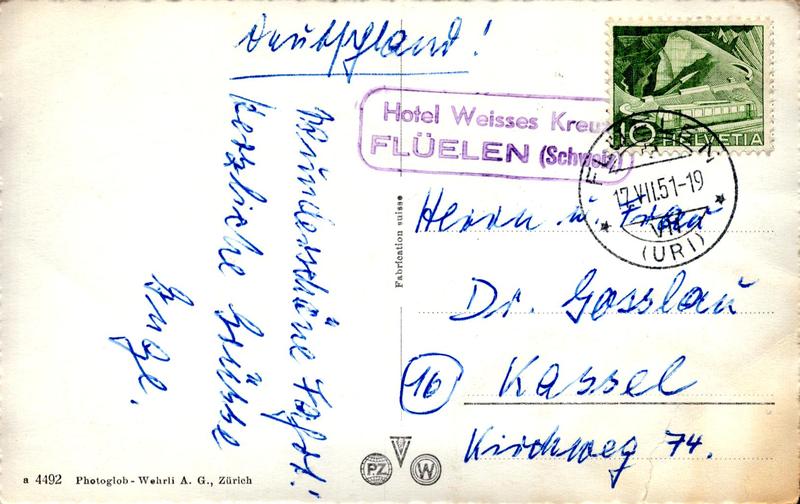 Deutschland!
Wunderschöne Fahrt!
Herzliche Grüsse
Inge.
Hotel Weisses Kreuz
FLÜELEN (Schweiz)
10 HELVETIA
FLÜELEN
17.VII.51-19
VII
(URI)
Fabrication suisse
Herrn u. Frau
Dr. Gosslau
16 Kassel
Kirchweg 74.
a 4492 Photoglob-Wehrli A. G., Zürich
PZ W